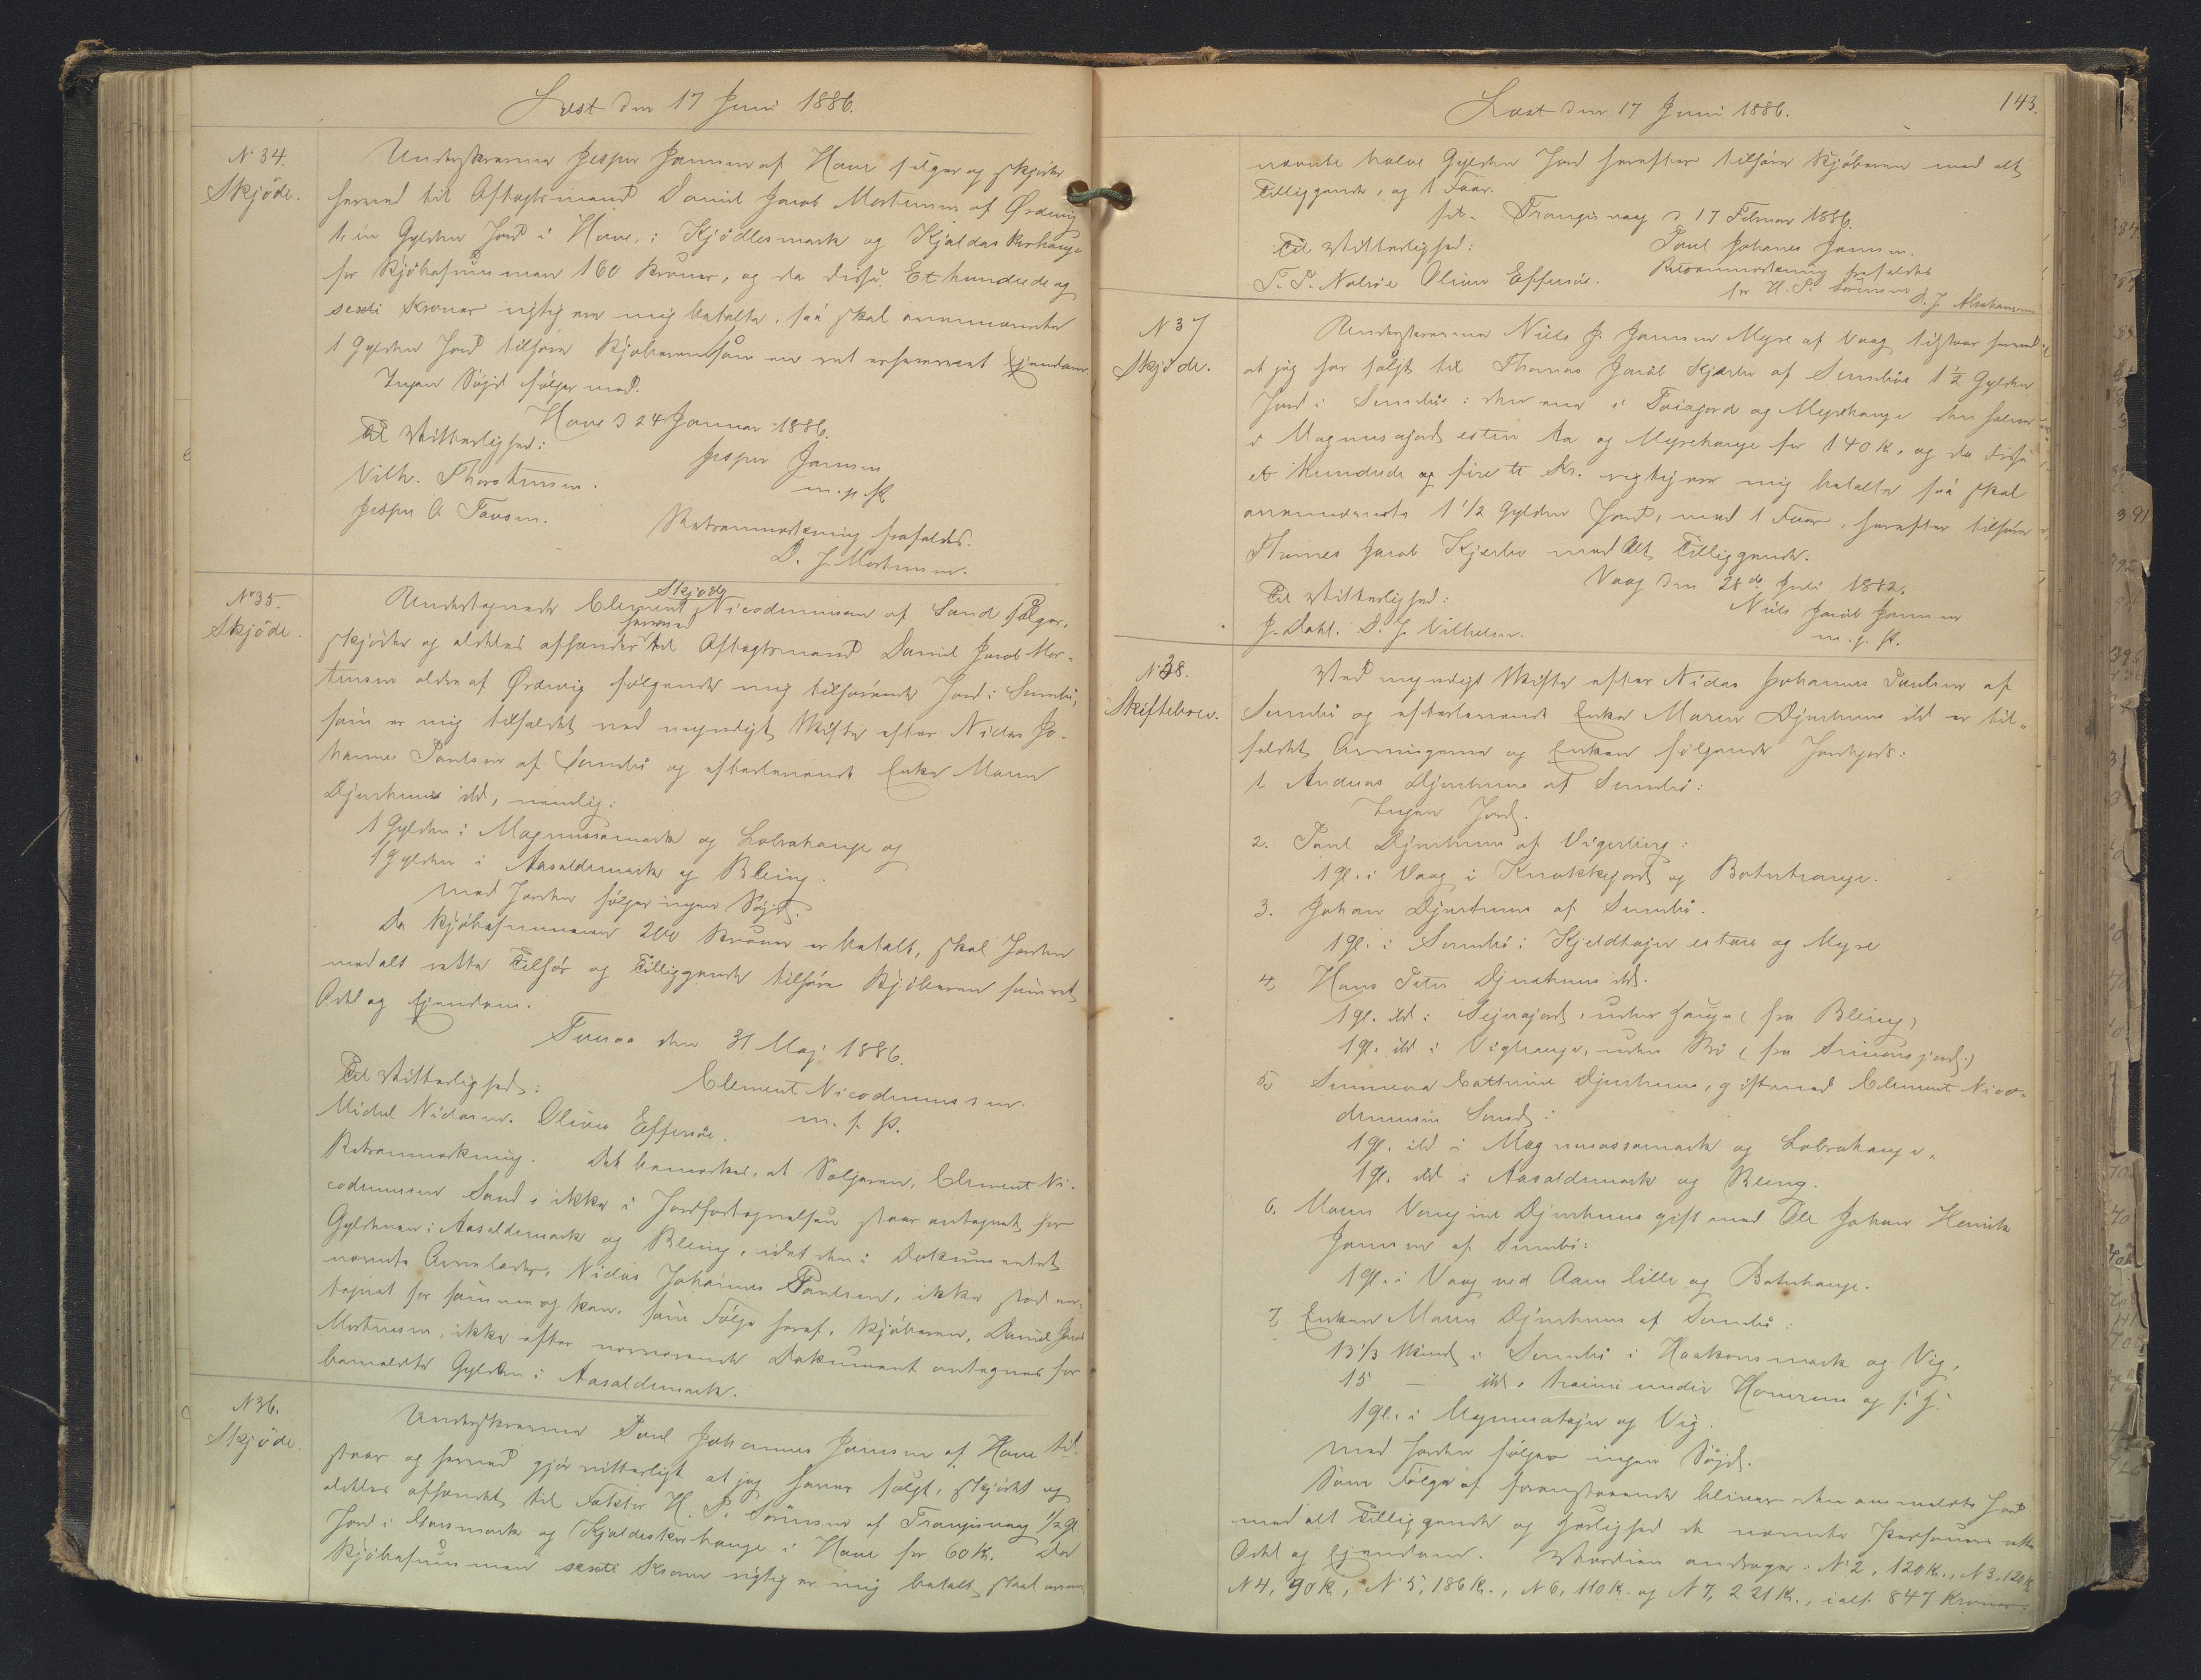 Læst den 17 Juni 1886.
N. 34.
Skjöde.
Underskrevne Jesper Jansen af Hove sælger og skjöder
herved til Aftægtsmand Daniel Jacob Mortensen af Ördevig
1. en Gylden Jord i Hove, i Kjödlesmark og Kjældaskerhauge
for Kjöbesummen 160 Kroner, og da disse Et hundrede og
sexti Kroner rigtig ere mig betalte, saa skal ovennævnte
1 Gylden Jord tilhöre Kjöberen som en ret erhvervet Ejendom
Ingen Söjd fölger med.
Hove d 24 Januar 1886.
Til Vitterlighed:
Jesper Jansen
Vilh. Thorstensen.
m. p. P.
Jesper A Tavsen.
Retsanmærkning frafaldes.
D. J. Mortensen.
N° 35.
Skjöde.
Skjöde
Undertegnede Clement Nicodemussen af Sand sælger,
herved
skjöder og aldeles afhænder til Aftægtsmand Daniel Jacob Mor-
tensen ældre af Ördevig fölgende mig tilhörende Jord i Sumbö,
som er mig tilfaldet ved myndigt Skifte efter Niclas Jo-
hannes Poulsen af Sumbö og efterlevende Enke Maren
Djurhuus ibd, nemlig:
1 Gylden i Magnussemark og Lobrahauge og
1 Gylden i Aasaldemark og Bleing.
Med Jorden fölger ingen Söjd.
Da Kjöbesummen 200 Kroner er betalt, skal Jorden
med alt rette Tilhör og Tilliggende tilhöre Kjöberen som ret
Odel og Ejendom.
Tveraa den 31 Maj 1886.
Til Vitterlighed:
Clement Nicodemussen.
Michel Niclasen. Oliver Effersöe.
m. f. P.
Retsanmærkning. Det bemærkes, at Sælgeren, Clement Ni-
codemussen Sand, ikke i Jordfortegnelsen staar antegnet for
Gylden i Aasaldemark og Bleing, idet den i Dokumentet
nævnte Arvelader, Niclas Johannes Poulsen, ikke stod an-
tegnet for samme og kan, som Fölge heraf, Kjöberen, Daniel Jacob
Mortensen, ikke efter nærværende Dokument antegnes for
bemeldte Gylden i Aasaldemark.
N 36.
Skjöde.
Underskrevne Poul Johannes Jansen af Hove til-
staar og herved gjör vitterligt at jeg haver solgt, skjödet og
aldeles afhændet til Faktor H. P. Sörensen af Trangisvaag 1/2 gl.
Jord i Garsmark og Kjældeskerhauge i Hove for 60 Kr. Da
Kjöbesummen sexti Kroner rigtig er mig betalt, skal oven-
143.
Læst den 17 Juni 1886.
nævnte halve Gylden Jord herefter tilhöre Kjöberen med alt
Tilliggende, og 1 Faar.
pt. Trangisvaag d 17 Februar 1886.
Til Vitterlighed:
Poul Johanes Jansen.
T. P. Nolsöe Oliver Effersöe.
Retsanmærkning frafaldes
for H. P. Sörensen
D. J. Abrahamsen
N 37
Skjöde.
Underskrevne Niels J. Jansen Myre af Vaag tilstaar herved
at jeg har solgt til Thomas Jacob Kjærbo af Sumböe 1 1/2 Gylden
Jord i Sumböe: den ene i Toiagjord og Myrehauge den halve
i Magnusagjord esten Aa og Myrehauge for 140 K. og da disse
et hundrede og firetr Kr. rigtig ere mig betalte saa skal
ovennævnte 1 1/2 Gylden Jord, med 1 Faar, herefter tilhöre
Thomas Jacob Kjærbo med Alt Tilliggende.
Vaag den 28de Juli 1882.
Til Vitterlighed:
Niels Jacob Jansen
J. Dahl. D. J. Vilhelm.
m. f. P.
N. 38.
Skiftebrev.
Ved myndigt Skifte efter Niclas Johannes Poulsen af
Sumbö og efterlevende Enke Maren Djurhuus ibd er til-
faldet Arvingerne og Enken fölgende Jordgods:
1. Andreas Djurhuus af Sumbö:
Ingen Jord.
2. Poul Djurhuus af Vigerberg:
1 gl. i Vaag i Krakkegjord og Botnhauge.
3. Johan Djurhuus af Sumbö.
1 gl. i Sumbö i Kjeldtojer estaa og Myre
4, Hans Peter Djurhuus ibd.
1 gl. ibd: Sejeragjord, uden Hauge (fra Bleing)
1 gl. ibd i Vighauge, uden Bö (fra Simonsgjord.)
5, Sunneva Cathrine Djurhuus, gift med Clement Nico-
demussen Sand:
1 gl. ibd i Magnussemark og Lobrahauge.
1 gl. ibd i Aasaldemark og Bleing.
6. Maren Vengine Djurhuus gift med Ole Johan Henrik
Jansen af Sumbö:
1 gl. i Vaag ved Aaen lille og Botnhauge.
7, Enken Maren Djurhuus af Sumbö:
13 1/3 Skind i Sumbö i Haakonsmark og Vig,
15 — ibd. heime under Homrum og s. J.
1 gl. i Mynnatojer og Vig.
Med Jorden fölger ingen Söjd.
Som Fölge af foranstaaende bliver den anmeldte Jord
med alt Tilliggende og Herlighed de nævnte Personers rette
Odel og Ejendom. Værdien andrager: N 2, 120 K., N 3, 120 K.
N 4, 90 K, N 5, 186 K., N 6, 110 K. og N 7, 221 K., i alt 847 Kroner.